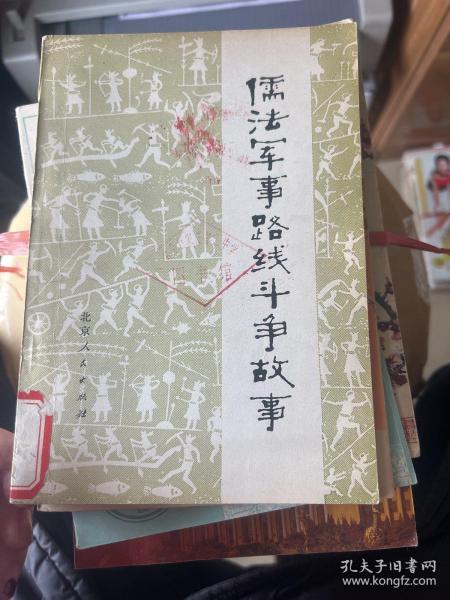 儒法军事路线斗争故事
北京人民出版社
馆
孔夫子旧书网
www.kongfz.com